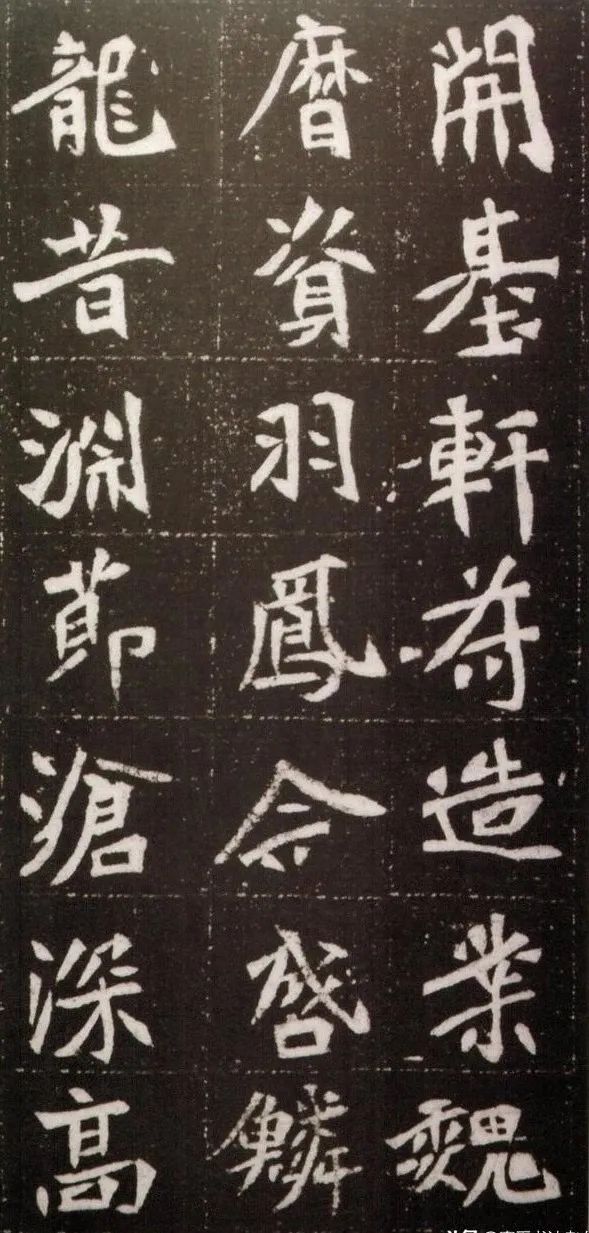 開基軒苻造業魏
曆資羽鳳今啓鱗
龍昔淵節滄深高